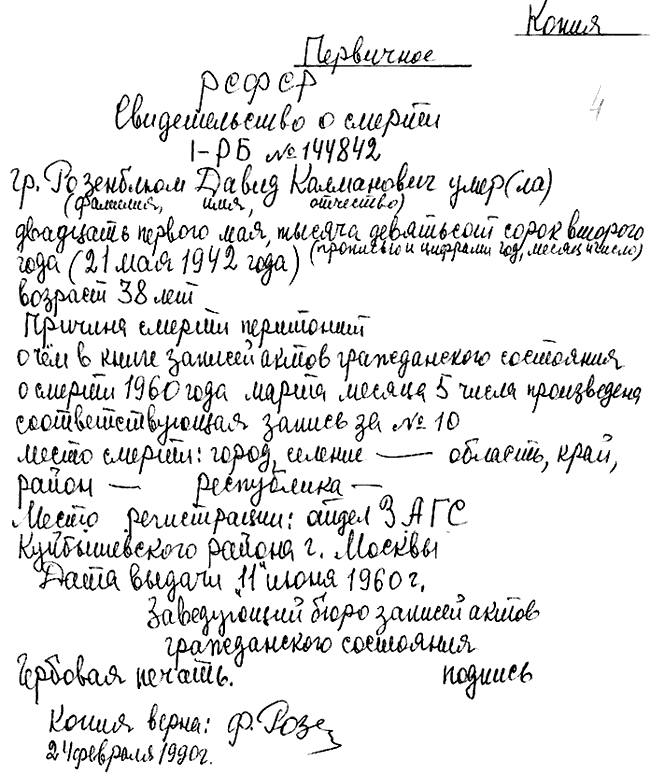 Копия
Первичное
РСФСР
4
Свидетельство о смерти
I-РБ № 144842
гр. Розенблюм Давид Калманович умер(ла)
(фамилия, имя, отчество)
двадцать первого мая, тысяча девятьсот сорок второго
года (21 мая 1942 года) (прописью и цифрами год, месяц и число)
возраст 38 лет
Причина смерти перитонит
о чём в книге записей актов гражданского состояния
о смерти 1960 года марта месяца 5 числа произведена
соответствующая запись за № 10
место смерти: город, селение — область, край,
район — республика —
Место регистрации: отдел ЗАГС
Куйбышевского района г. Москвы
Дата выдачи "11" июня 1960 г.
Заведующий бюро записей актов
гражданского состояния
Гербовая печать. подпись
Копия верна: Ф. Розе
24 февраля 1990г.